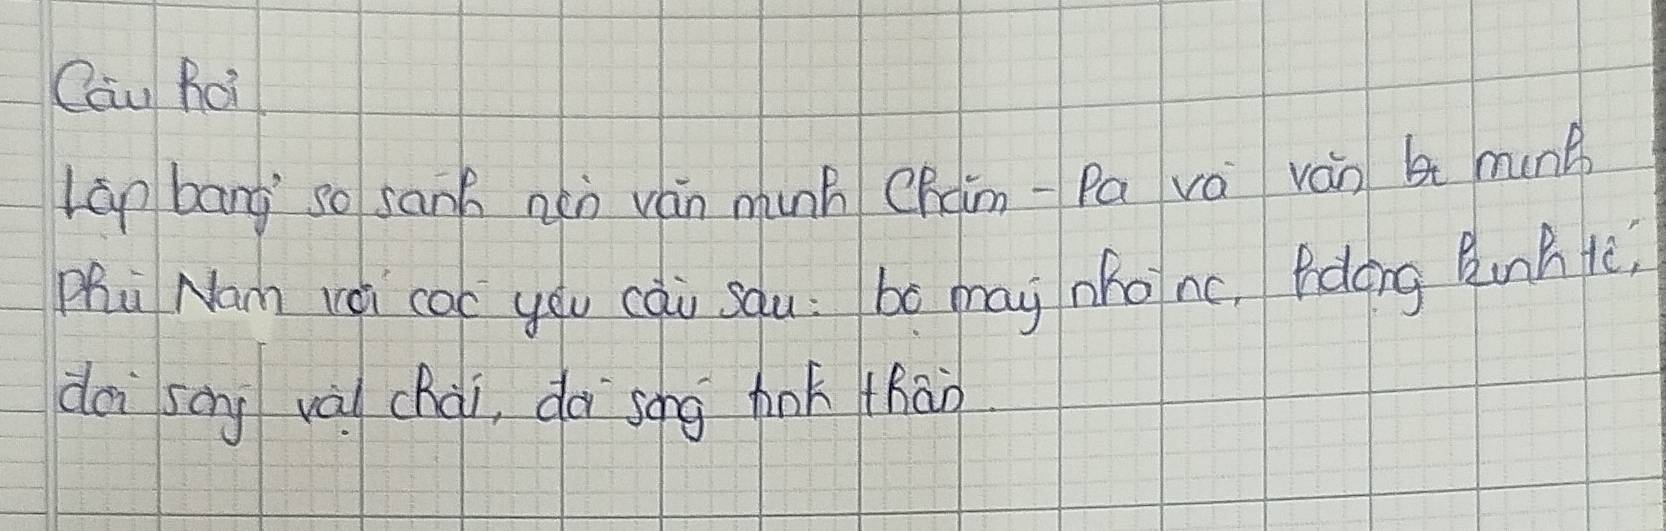 Câu hỏi
Lập bảng so sánh nền văn minh Chăm - Pa và văn minh
Phù Nam với các yêu cầu sau: bộ máy nhà nc, hđộng kinh tế,
đời sống vật chất, đời sống tinh thần.